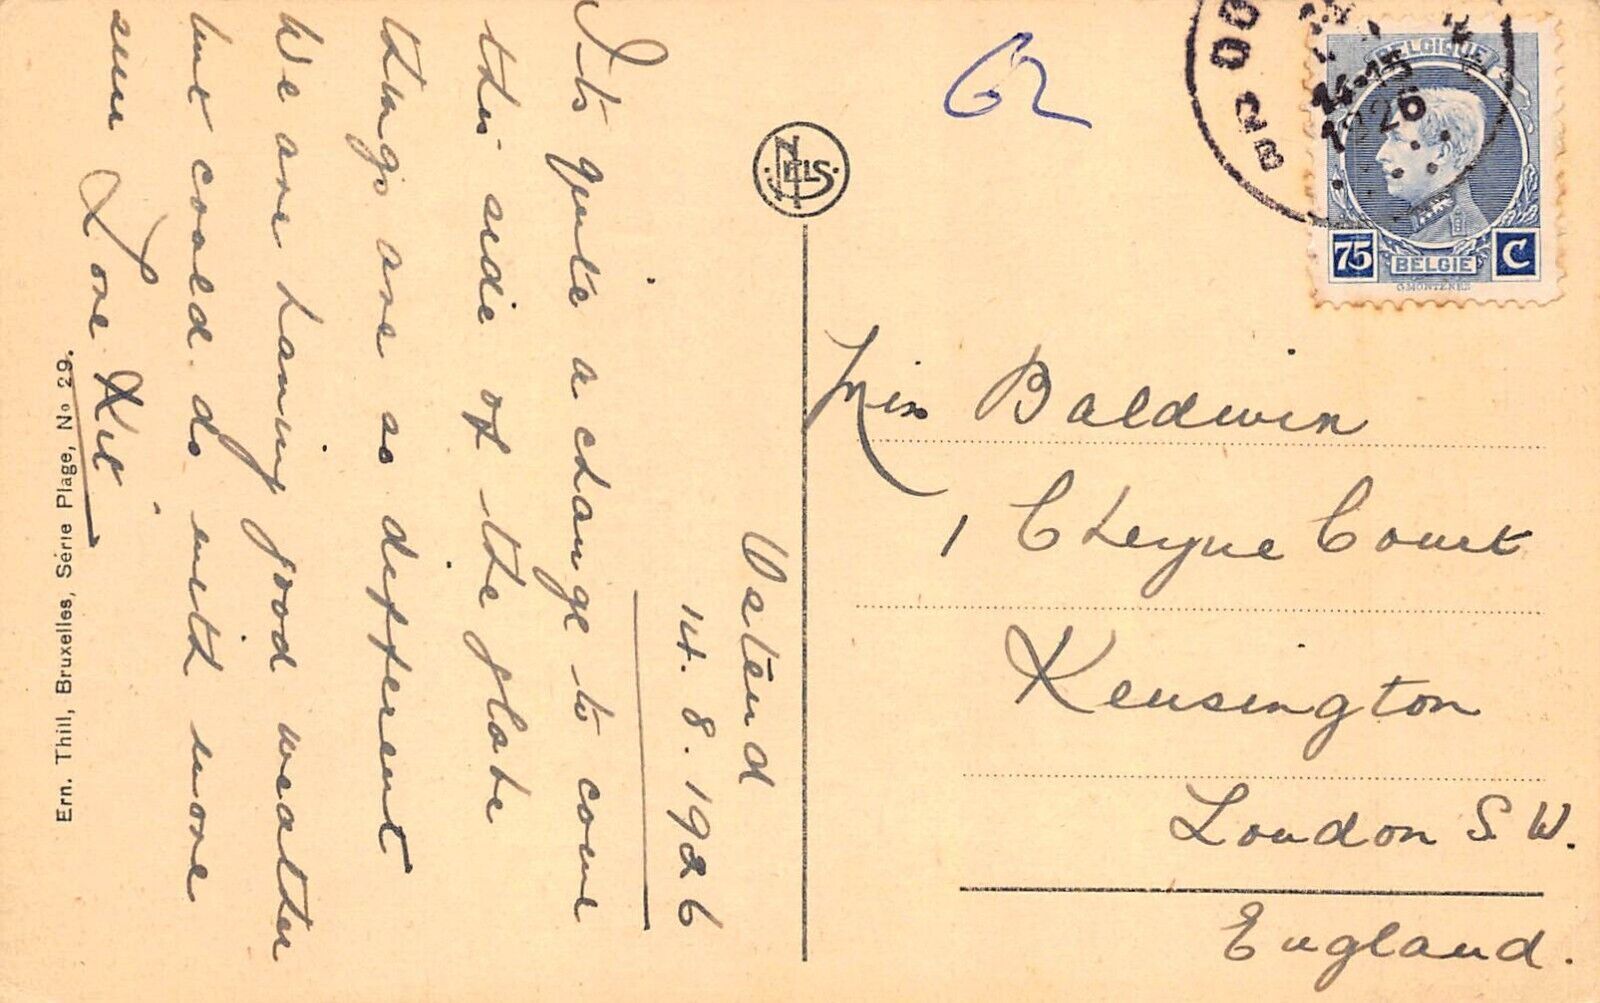 Ostend
14.8.1926
It's quite a change to come
this side of the globe
things are so different
We are having good weather
but could do with more
sun Love Kit
Ern. Thill, Bruxelles, Série Plage, No 29.
NELS
62
BELGIQUE
14-15
1926
75 C
BELGIE
G.MONTENEZ
Miss Baldwin
1 Cheyne Court
Kensington
London S.W.
England.